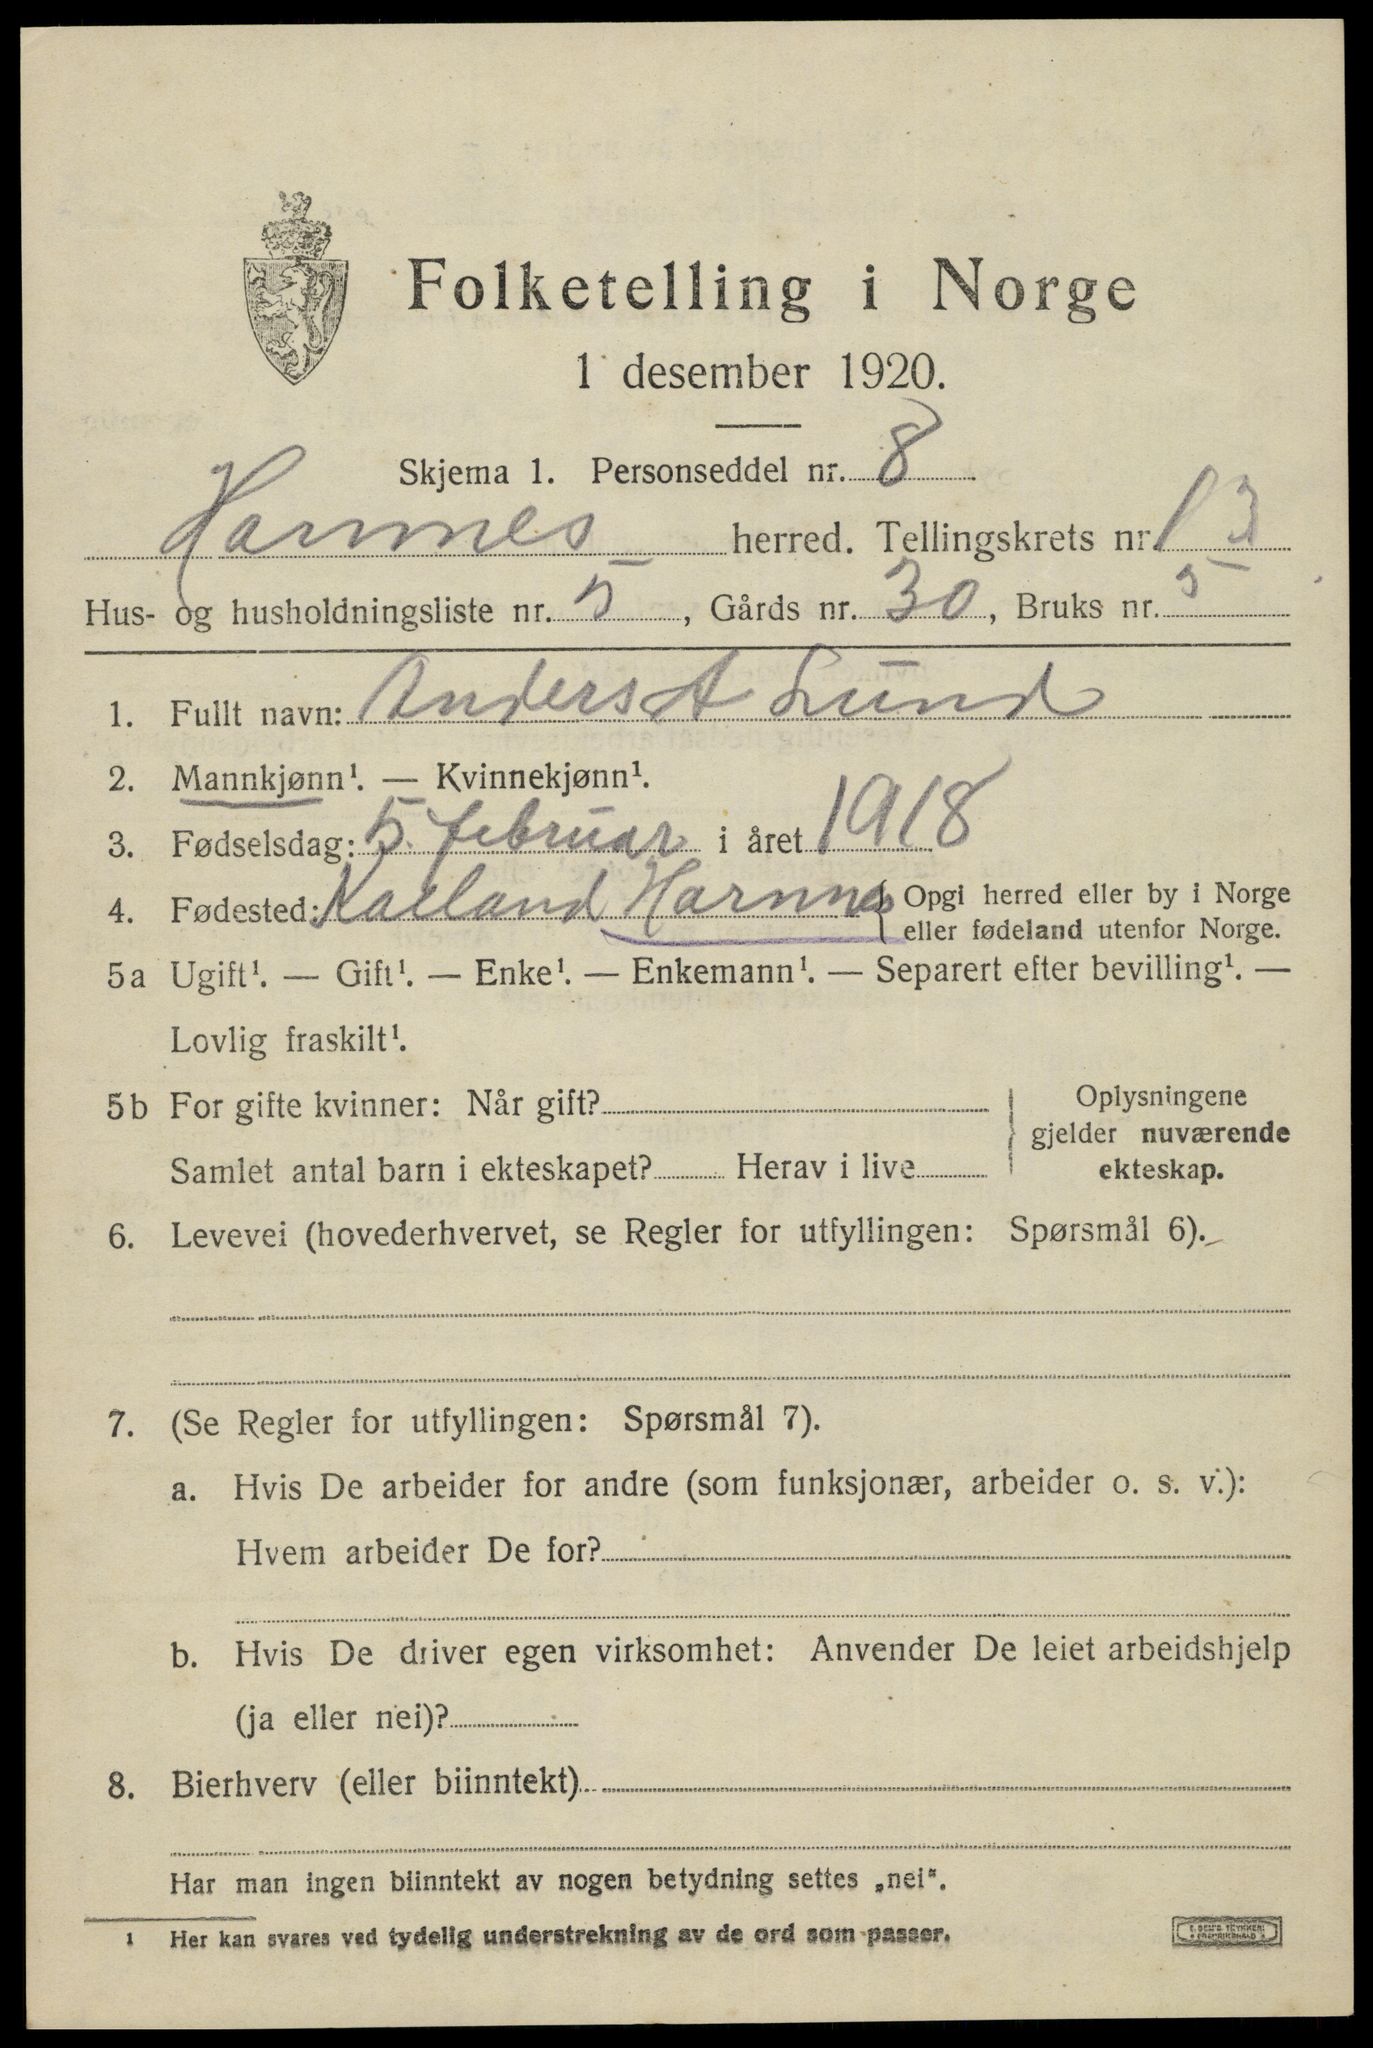 Folketelling i Norge
1 desember 1920.
Skjema 1. Personseddel nr. 8
Hamnes herred. Tellingskrets nr. 13
Hus- og husholdningsliste nr. 5, Gårds nr. 30, Bruks nr. 5
1. Fullt navn: Anders A Lund
2. Mannkjønn¹. — Kvinnekjønn¹.
3. Fødselsdag: 5. februar i året 1918
4. Fødested: Kalland { Opgi herred eller by i Norge
eller fødeland utenfor Norge.
5a Ugift¹. — Gift¹. — Enke¹. — Enkemann¹. — Separert efter bevilling¹. —
Lovlig fraskilt¹.
5b For gifte kvinner: Når gift?
Samlet antal barn i ekteskapet? Herav i live
} Oplysningene
gjelder nuværende
ekteskap.
6. Levevei (hovederhvervet, se Regler for utfyllingen: Spørsmål 6).
7. (Se Regler for utfyllingen: Spørsmål 7).
a. Hvis De arbeider for andre (som funksjonær, arbeider o. s. v.):
Hvem arbeider De for?
b. Hvis De driver egen virksomhet: Anvender De leiet arbeidshjelp
(ja eller nei)?
8. Bierhverv (eller biinntekt)
Har man ingen biinntekt av nogen betydning settes „nei".
1 Her kan svares ved tydelig understrekning av de ord som passer.